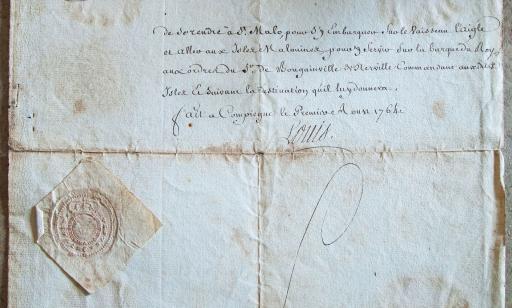 de se rendre à St. Malo, pour s'y Embarquer sur le Vaisseau L'aigle
et aller aux Isles Malouines, pour y Servir sur la barque du Roy
aux ordres du Sr. de Bougainville de Nerville Commandant aux dites
Isles et Suivant la destination quil luy donnera.
fait a Compiegne le Premier Aoust 1764.
Louis.